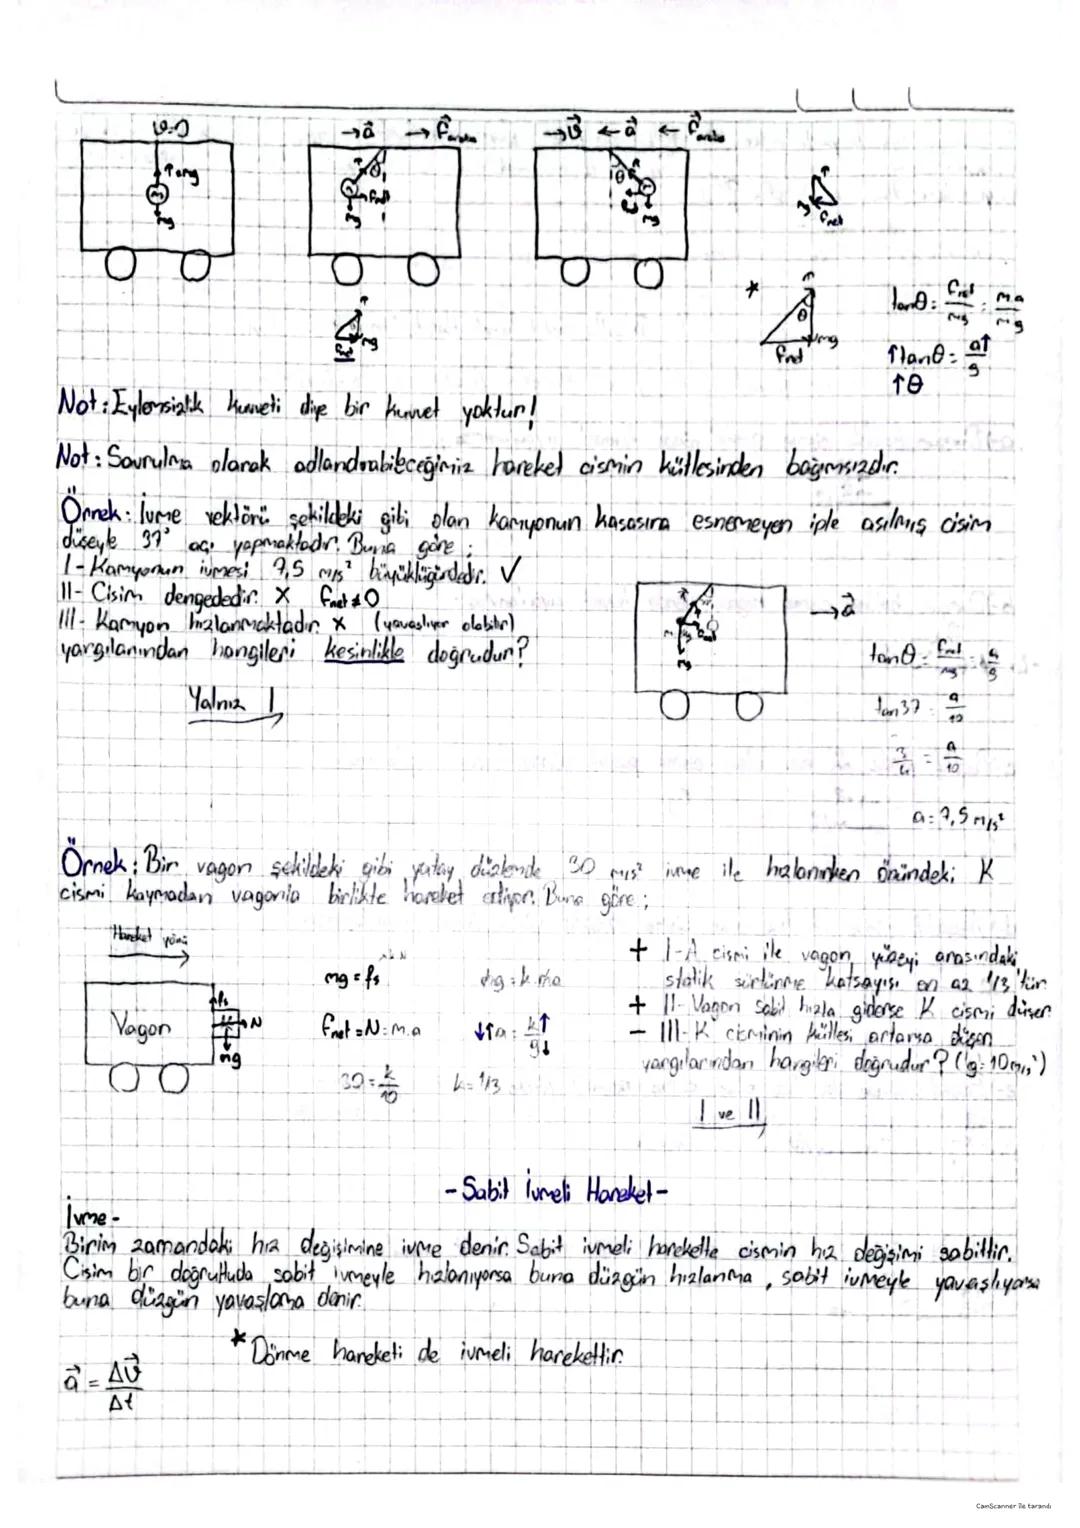 v=0
→a⃗ → F⃗
→v⃗ ← a⃗ ← F⃗
mg
Fnet
mg
Fnet
mg
mg
Fnet
Fnet mg
* θ
Fnet mg
tanθ = Fnet/mg = m a/m g
↑tanθ = a↑/g
↑θ
Not: Eylemsizlik kuvveti diye bir kuvvet yoktur!
Not: Savrulma olarak adlandırabileceğimiz hareket cismin kütlesinden bağımsızdır.
Örnek: İvme vektörü şekildeki gibi olan kamyonun kasasına esnemeyen iple asılmış cisim
düşeyle 37° açı yapmaktadır. Buna göre;
I- Kamyonun ivmesi 7,5 m/s² büyüklüğündedir. ✓
II- Cisim dengededir. X Fnet ≠ 0
III- Kamyon hızlanmaktadır. X (yavaşlıyor olabilir)
yargılarından hangileri kesinlikle doğrudur?
Yalnız I
→a⃗
mg
tanθ = Fnet/mg = a/g
tan37 = a/10
3/4 = a/10
a = 7,5 m/s²
Örnek: Bir vagon şekildeki gibi yatay düzlemde 30 m/s² ivme ile hızlanırken önündeki K
cismi kaymadan vagonla birlikte hareket ediyor. Buna göre;
Hareket yönü
Vagon
fs
N
mg
mg = fs
Fnet = N = m.a
30 = k/10
mg = k.ma
↓↑a = k↑/g↓
k = 1/3
+ I- A cismi ile vagon yüzeyi arasındaki
statik sürtünme katsayısı en az 1/3'tür.
+ II- Vagon sabit hızla giderse K cismi düşer.
- III- K cisminin kütlesi artarsa düşer.
yargılarından hangileri doğrudur? (g=10m/s²)
I ve II
- Sabit İvmeli Hareket -
İvme -
Birim zamandaki hız değişimine ivme denir. Sabit ivmeli harekette cismin hız değişimi sabittir.
Cisim bir doğrultuda sabit ivmeyle hızlanıyorsa buna düzgün hızlanma, sabit ivmeyle yavaşlıyorsa
buna düzgün yavaşlama denir.
* Dönme hareketi de ivmeli harekettir.
a⃗ = Δv⃗/Δt
CamScanner ile tarandı